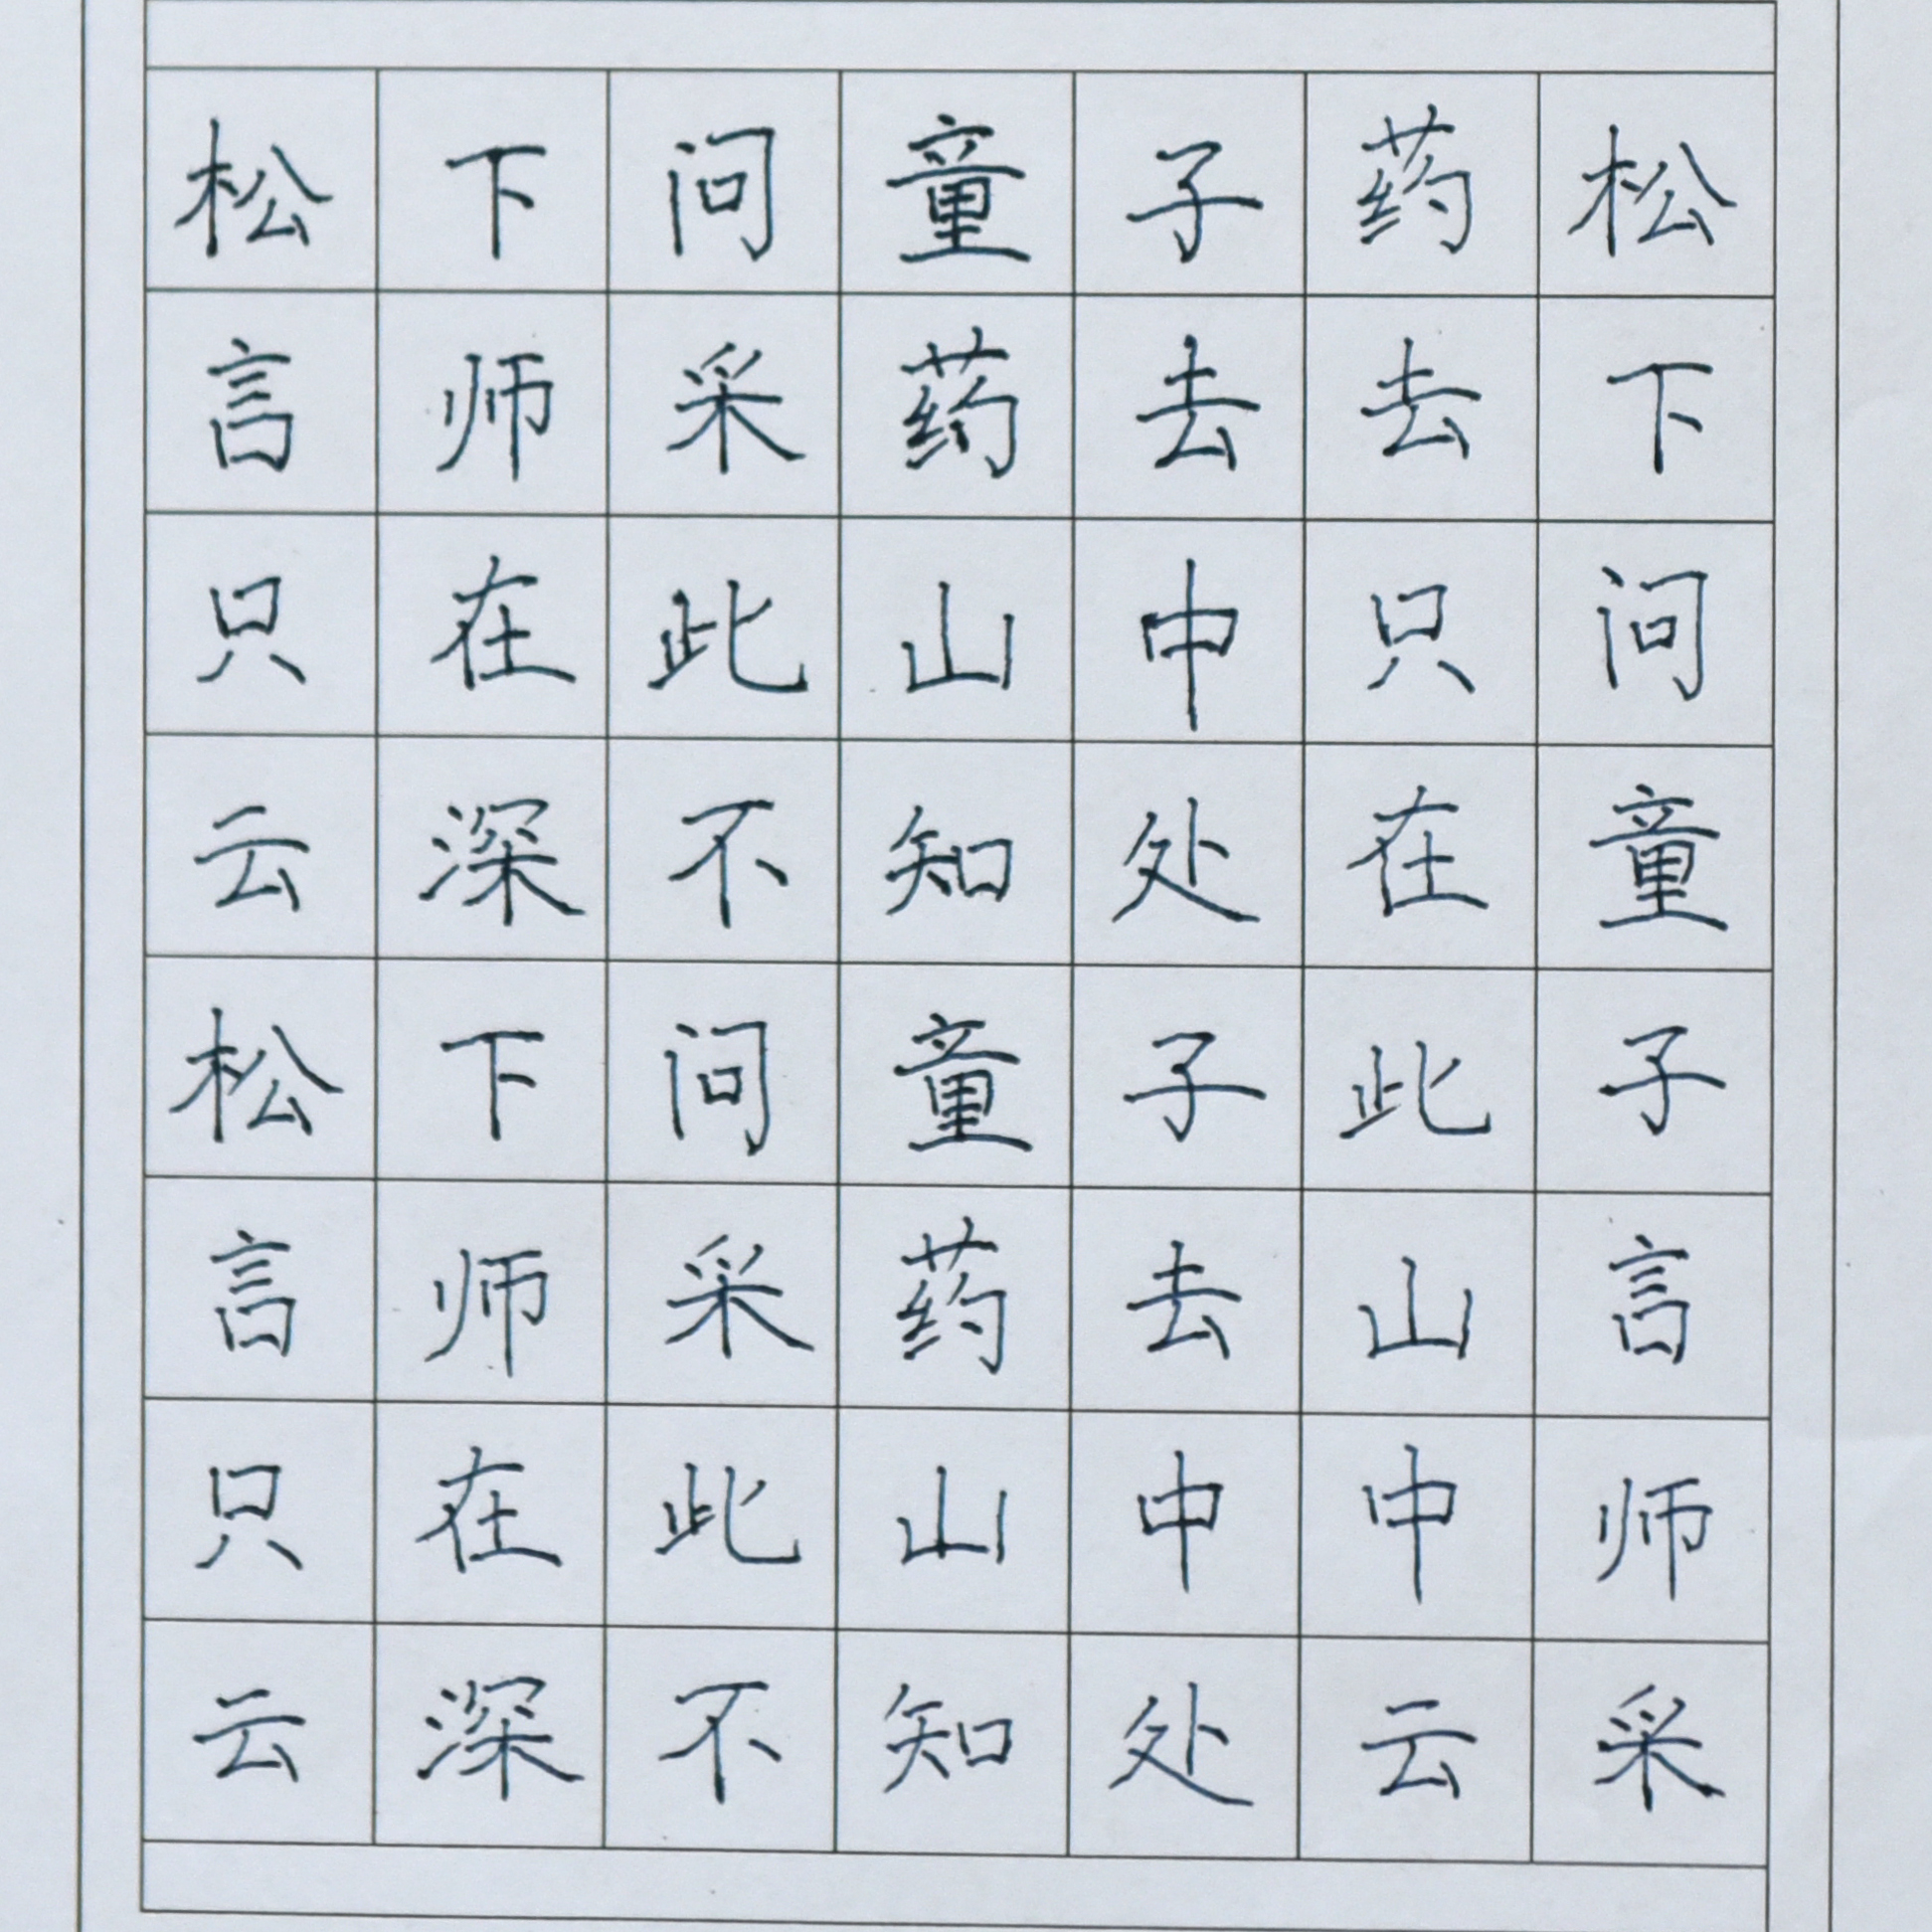 松下问童子药松
言师采药去去下
只在此山中只问
云深不知处在童
松下问童子此子
言师采药去山言
只在此山中中师
云深不知处云采